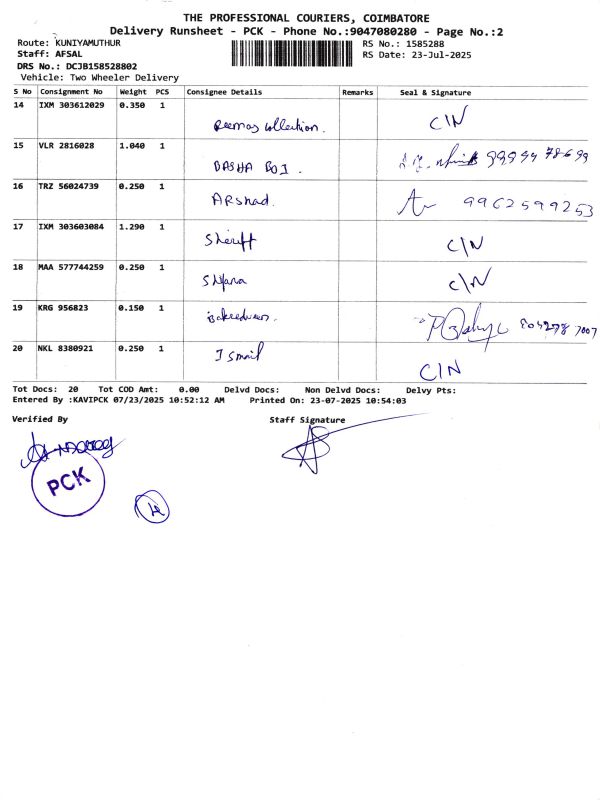 THE PROFESSIONAL COURIERS, COIMBATORE
Delivery Runsheet - PCK - Phone No.:9047080280 - Page No.:2
Route: KUNIYAMUTHUR RS No.: 1585288
Staff: AFSAL RS Date: 23-Jul-2025
DRS No.: DCJB158528802
Vehicle: Two Wheeler Delivery
S No Consignment No Weight PCS Consignee Details Remarks Seal & Signature
14 IXM 303612029 0.350 1
Reemas Collection. C/N
15 VLR 2816028 1.040 1
BASHA BOI. 99994 78699
16 TRZ 56024739 0.250 1
ARshad. 9962599253
17 IXM 303603084 1.290 1
Sheriff C/N
18 MAA 577744259 0.250 1
Shifana C/N
19 KRG 956823 0.150 1
20 NKL 8380921 0.250 1
Ismail C/N
Tot Docs: 20 Tot COD Amt: 0.00 Delvd Docs: Non Delvd Docs: Delvy Pts:
Entered By :KAVIPCK 07/23/2025 10:52:12 AM Printed On: 23-07-2025 10:54:03
Verified By Staff Signature
PCK